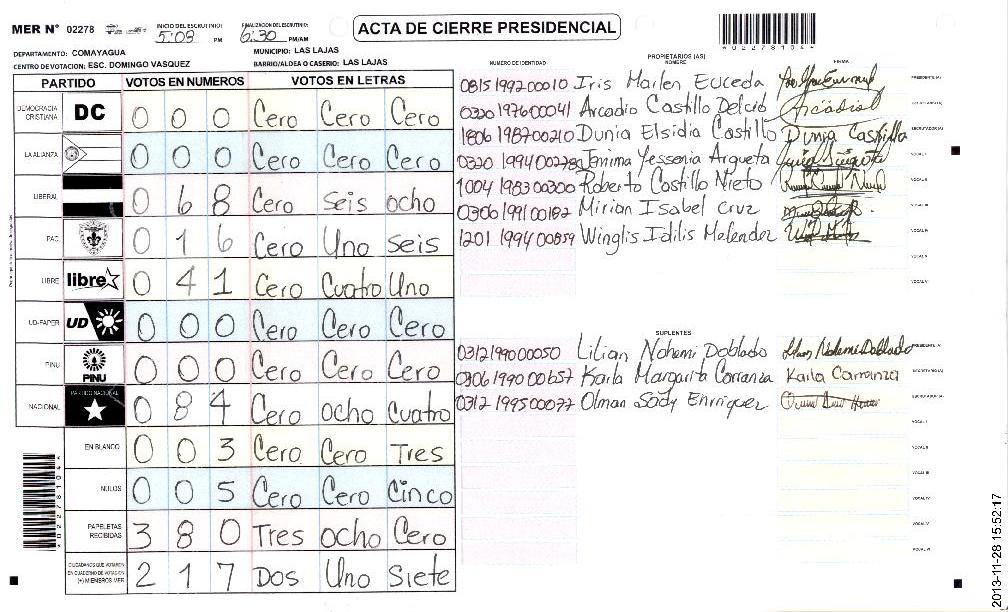 MER N° 02278 INICIO DEL ESCRUTINIO: 5:08 PM FINALIZACION DEL ESCRUTINIO: 6:30 PM/AM ACTA DE CIERRE PRESIDENCIAL
*02278104*
DEPARTAMENTO: COMAYAGUA MUNICIPIO: LAS LAJAS
CENTRO DE VOTACION: ESC. DOMINGO VASQUEZ BARRIO/ALDEA O CASERIO: LAS LAJAS
PARTIDO VOTOS EN NUMEROS VOTOS EN LETRAS
DEMOCRACIA CRISTIANA DC 0 0 0 Cero Cero Cero
LA ALIANZA 0 0 0 Cero Cero Cero
LIBERAL 0 6 8 Cero Seis ocho
PAC 0 1 6 Cero Uno Seis
LIBRE libre 0 4 1 Cero Cuatro Uno
UD-FAPER UD 0 0 0 Cero Cero Cero
PINU PINU 0 0 0 Cero Cero Cero
NACIONAL PARTIDO NACIONAL 0 8 4 Cero ocho Cuatro
EN BLANCO 0 0 3 Cero Cero Tres
NULOS 0 0 5 Cero Cero Cinco
PAPELETAS RECIBIDAS 3 8 0 Tres ocho Cero
CIUDADANOS QUE VOTARON EN CUADERNO DE VOTACION (+) MIEMBROS MER 2 1 7 Dos Uno Siete
*02278104*
PROPIETARIOS (AS)
NUMERO DE IDENTIDAD NOMBRE FIRMA
0815199200010 Iris Marlen Euceda PRESIDENTE (A)
0320197600041 Arcadio Castillo Delcid SECRETARIO (A)
1806198700210 Dunia Elsidia Castillo Dunia Castillo ESCRUTADOR (A)
0320199400278 Jenima Yessenia Argueta VOCAL I
1004198300300 Roberto Castillo Nieto VOCAL II
0306199100182 Mirian Isabel Cruz VOCAL III
1201199400859 Winglis Idilis Melendez VOCAL IV
VOCAL V
VOCAL VI
SUPLENTES
0312199000050 Lilian Nohemi Doblado Lilian Nohemi Doblado PRESIDENTE (A)
0306199000657 Karla Margarita Carranza Karla Carranza SECRETARIO (A)
0312199500077 Olman Sady Enrriquez ESCRUTADOR (A)
VOCAL I
VOCAL II
VOCAL III
VOCAL IV
VOCAL V
VOCAL VI
2013-11-28 15:52:17